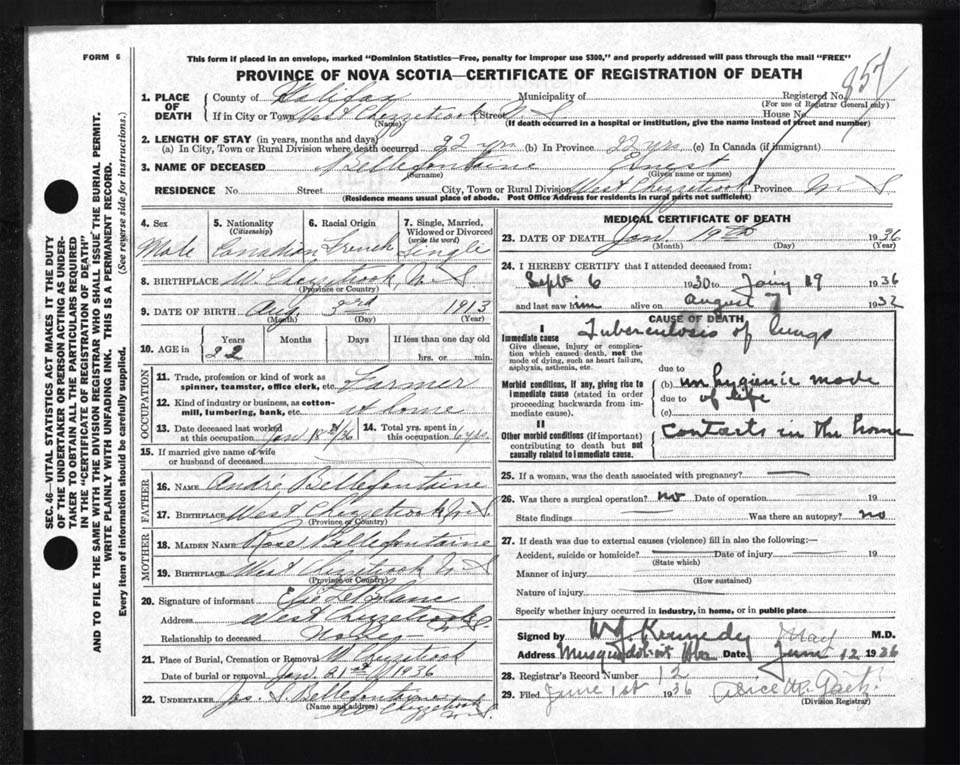 FORM 6
This form if placed in an envelope, marked "Dominion Statistics—Free, penalty for improper use $300," and properly addressed will pass through the mail "FREE"
PROVINCE OF NOVA SCOTIA—CERTIFICATE OF REGISTRATION OF DEATH
857
1. PLACE OF DEATH
County of Halifax Municipality of Registered No.
(For use of Registrar General only)
If in City or Town West Chezzetcook Street N. S House No.
(Name) (If death occurred in a hospital or institution, give the name instead of street and number)
2. LENGTH OF STAY (in years, months and days)
(a) In City, Town or Rural Division where death occurred 22 yrs. (b) In Province 22 yrs. (c) In Canada (if immigrant)
3. NAME OF DECEASED Bellefontaine Ernest
(Surname) (Given name or names)
RESIDENCE No. Street City, Town or Rural Division West Chezzetcook Province N. S
(Residence means usual place of abode. Post Office Address for residents in rural parts not sufficient)
4. Sex
Male
5. Nationality (Citizenship)
Canadian
6. Racial Origin
French
7. Single, Married, Widowed or Divorced (write the word)
Single
8. BIRTHPLACE W. Chezzetcook, N. S
(Province or Country)
9. DATE OF BIRTH Aug. 3rd 1913
(Month) (Day) (Year)
10. AGE in Years Months Days If less than one day old
22 hrs. or min.
OCCUPATION
11. Trade, profession or kind of work as spinner, teamster, office clerk, etc. Farmer
12. Kind of industry or business, as cotton-mill, lumbering, bank, etc. at home
13. Date deceased last worked at this occupation Jan 18th/36
14. Total yrs. spent in this occupation 6 yrs.
15. If married give name of wife or husband of deceased
FATHER
16. NAME André Bellefontaine
17. BIRTHPLACE West Chezzetcook, N. S
(Province or Country)
MOTHER
18. MAIDEN NAME Rose Bellefontaine
19. BIRTHPLACE West Chezzetcook N. S
(Province or Country)
20. Signature of informant
Address West Chezzetcook
Relationship to deceased
21. Place of Burial, Cremation or Removal W. Chezzetcook
Date of burial or removal Jan. 21st 1936
22. UNDERTAKER Jos. S Bellefontaine
(Name and address) W Chezzetcook N. S.
MEDICAL CERTIFICATE OF DEATH
23. DATE OF DEATH Jan. 19th 1936
(Month) (Day) (Year)
24. I HEREBY CERTIFY that I attended deceased from:
Sept 6 1930 to Jan'y 19 1936
and last saw him alive on August 7 1932
CAUSE OF DEATH
I
Immediate cause Tuberculosis of lungs
Give disease, injury or complication which caused death, not the mode of dying, such as heart failure, asphyxia, asthenia, etc.
due to
Morbid conditions, if any, giving rise to immediate cause (stated in order proceeding backwards from immediate cause).
(b) unhygienic mode
due to of life
(c)
II
Other morbid conditions (if important) contributing to death but not causally related to immediate cause.
Contacts in the home
25. If a woman, was the death associated with pregnancy?
26. Was there a surgical operation? no Date of operation 19
State findings Was there an autopsy? no
27. If death was due to external causes (violence) fill in also the following:—
Accident, suicide or homicide? Date of injury 19
(State which)
Manner of injury
(How sustained)
Nature of injury
Specify whether injury occurred in industry, in home, or in public place
Signed by W. J. Kennedy M.D.
May
Address Musquodoboit Hbr Date June 12 1936
28. Registrar's Record Number 12
29. Filed June 1st 1936 Alice M.
(Division Registrar)
SEC. 46—VITAL STATISTICS ACT MAKES IT THE DUTY
OF THE UNDERTAKER OR PERSON ACTING AS UNDER-
TAKER TO OBTAIN ALL THE PARTICULARS REQUIRED
IN THE "CERTIFICATE OF REGISTRATION OF DEATH"
AND TO FILE THE SAME WITH THE DIVISION REGISTRAR WHO SHALL ISSUE THE BURIAL PERMIT.
WRITE PLAINLY WITH UNFADING INK. THIS IS A PERMANENT RECORD.
Every item of information should be carefully supplied. (See reverse side for instructions.)